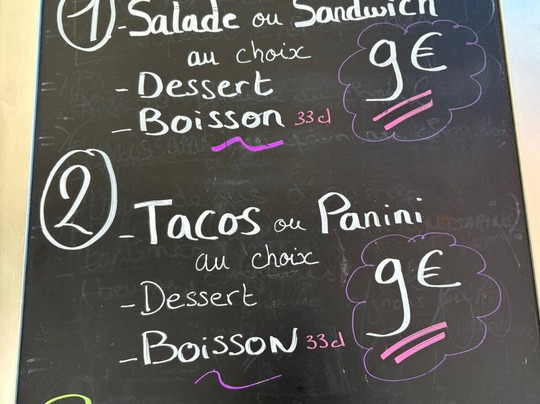 1 - Salade ou Sandwich
au choix
9€
- Dessert
- Boisson 33cl
2
- Tacos ou Panini
au choix
9€
- Dessert
- Boisson 33cl